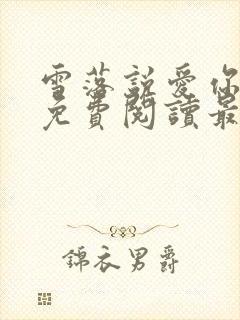 雪落說愛你
免費閱讀最
錦衣男爵